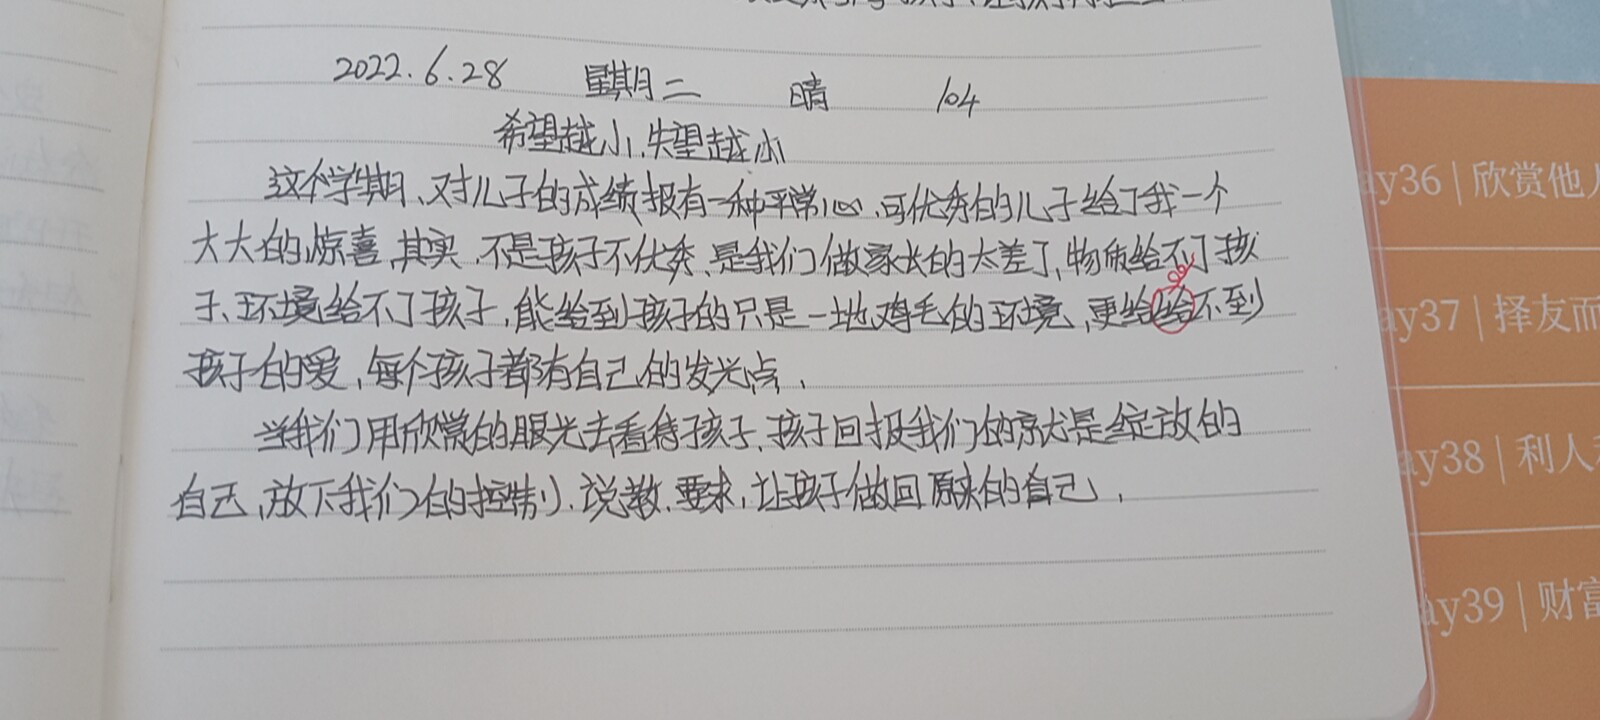 2022.6.28 星期二 晴 104
希望越小、失望越小
这个学期、对儿子的成绩报有一种平常心、可优秀的儿子给了我一个
大大的惊喜,其实,不是孩子不优秀、是我们做家长的太差了,物质给不了孩
子、环境给不了孩子,能给到孩子的只是一地鸡毛的环境,更给给不到
孩子的爱,每个孩子都有自己的发光点、
当我们用欣赏的眼光去看待孩子、孩子回报我们的就是绽放的
自己,放下我们的控制、说教、要求,让孩子做回原来的自己,
ay36 | 欣赏他人
ay37 | 择友而
ay38 | 利人
ay39 | 财富